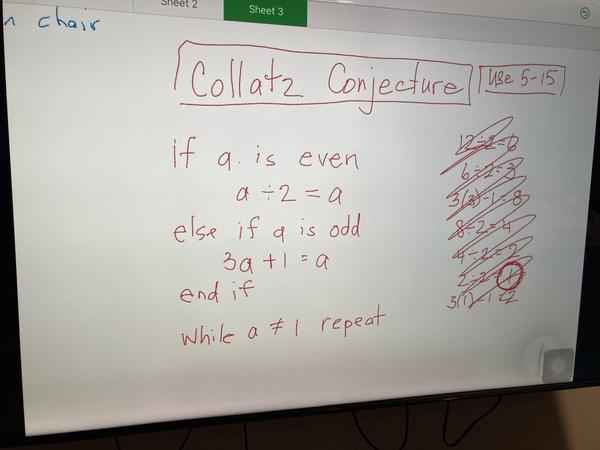 Sheet 2
Sheet 3
n chair
Collatz Conjecture
Use 5-15
if a is even
a ÷ 2 = a
else if a is odd
3a + 1 = a
end if
while a ≠ 1 repeat
12÷2=6
6÷2=3
3(3)-1=8
8÷2=4
4÷2=2
2÷2=1
3(1)-1=2